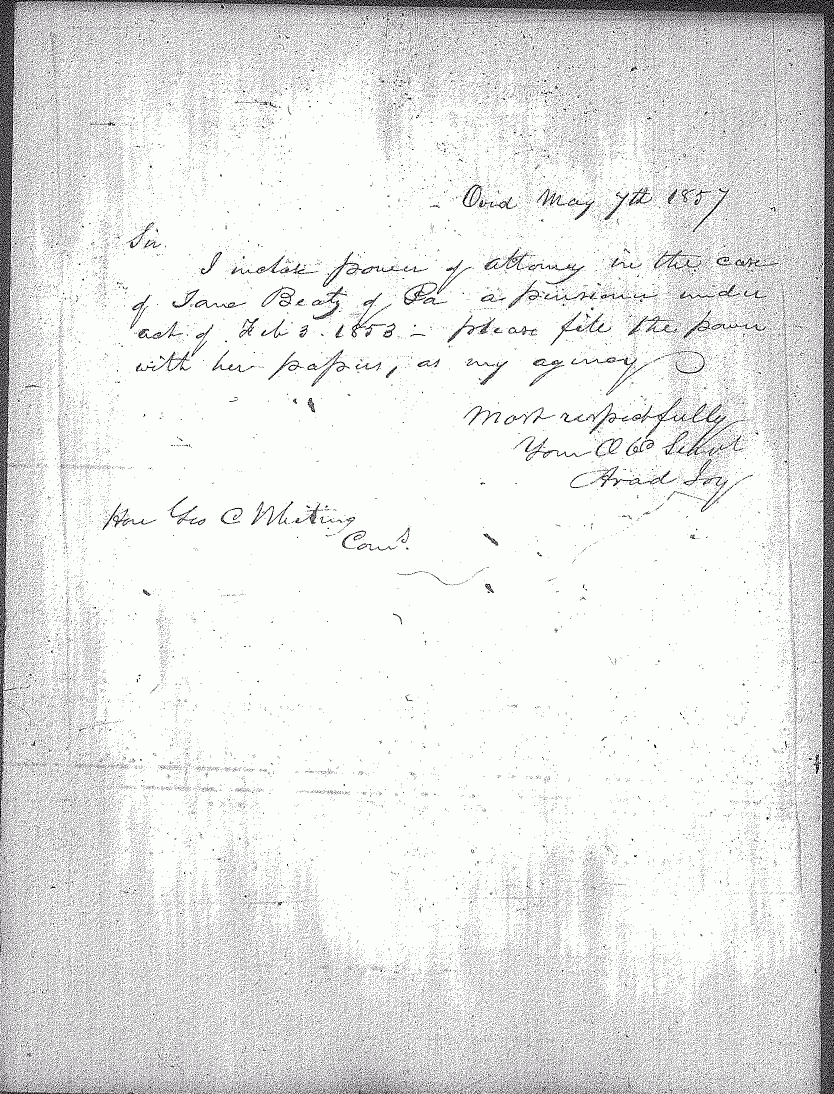 Ovid May 7th 1857
Sir
I inclose power of attorney in the case
of Jane Beaty of Pa a pensioner under
act of Feb 3. 1853 - please file the power
with her papers, as my agency
Most respectfully
Your Ob Servt
Arad Joy
Hon Geo C Whiting
Comr.